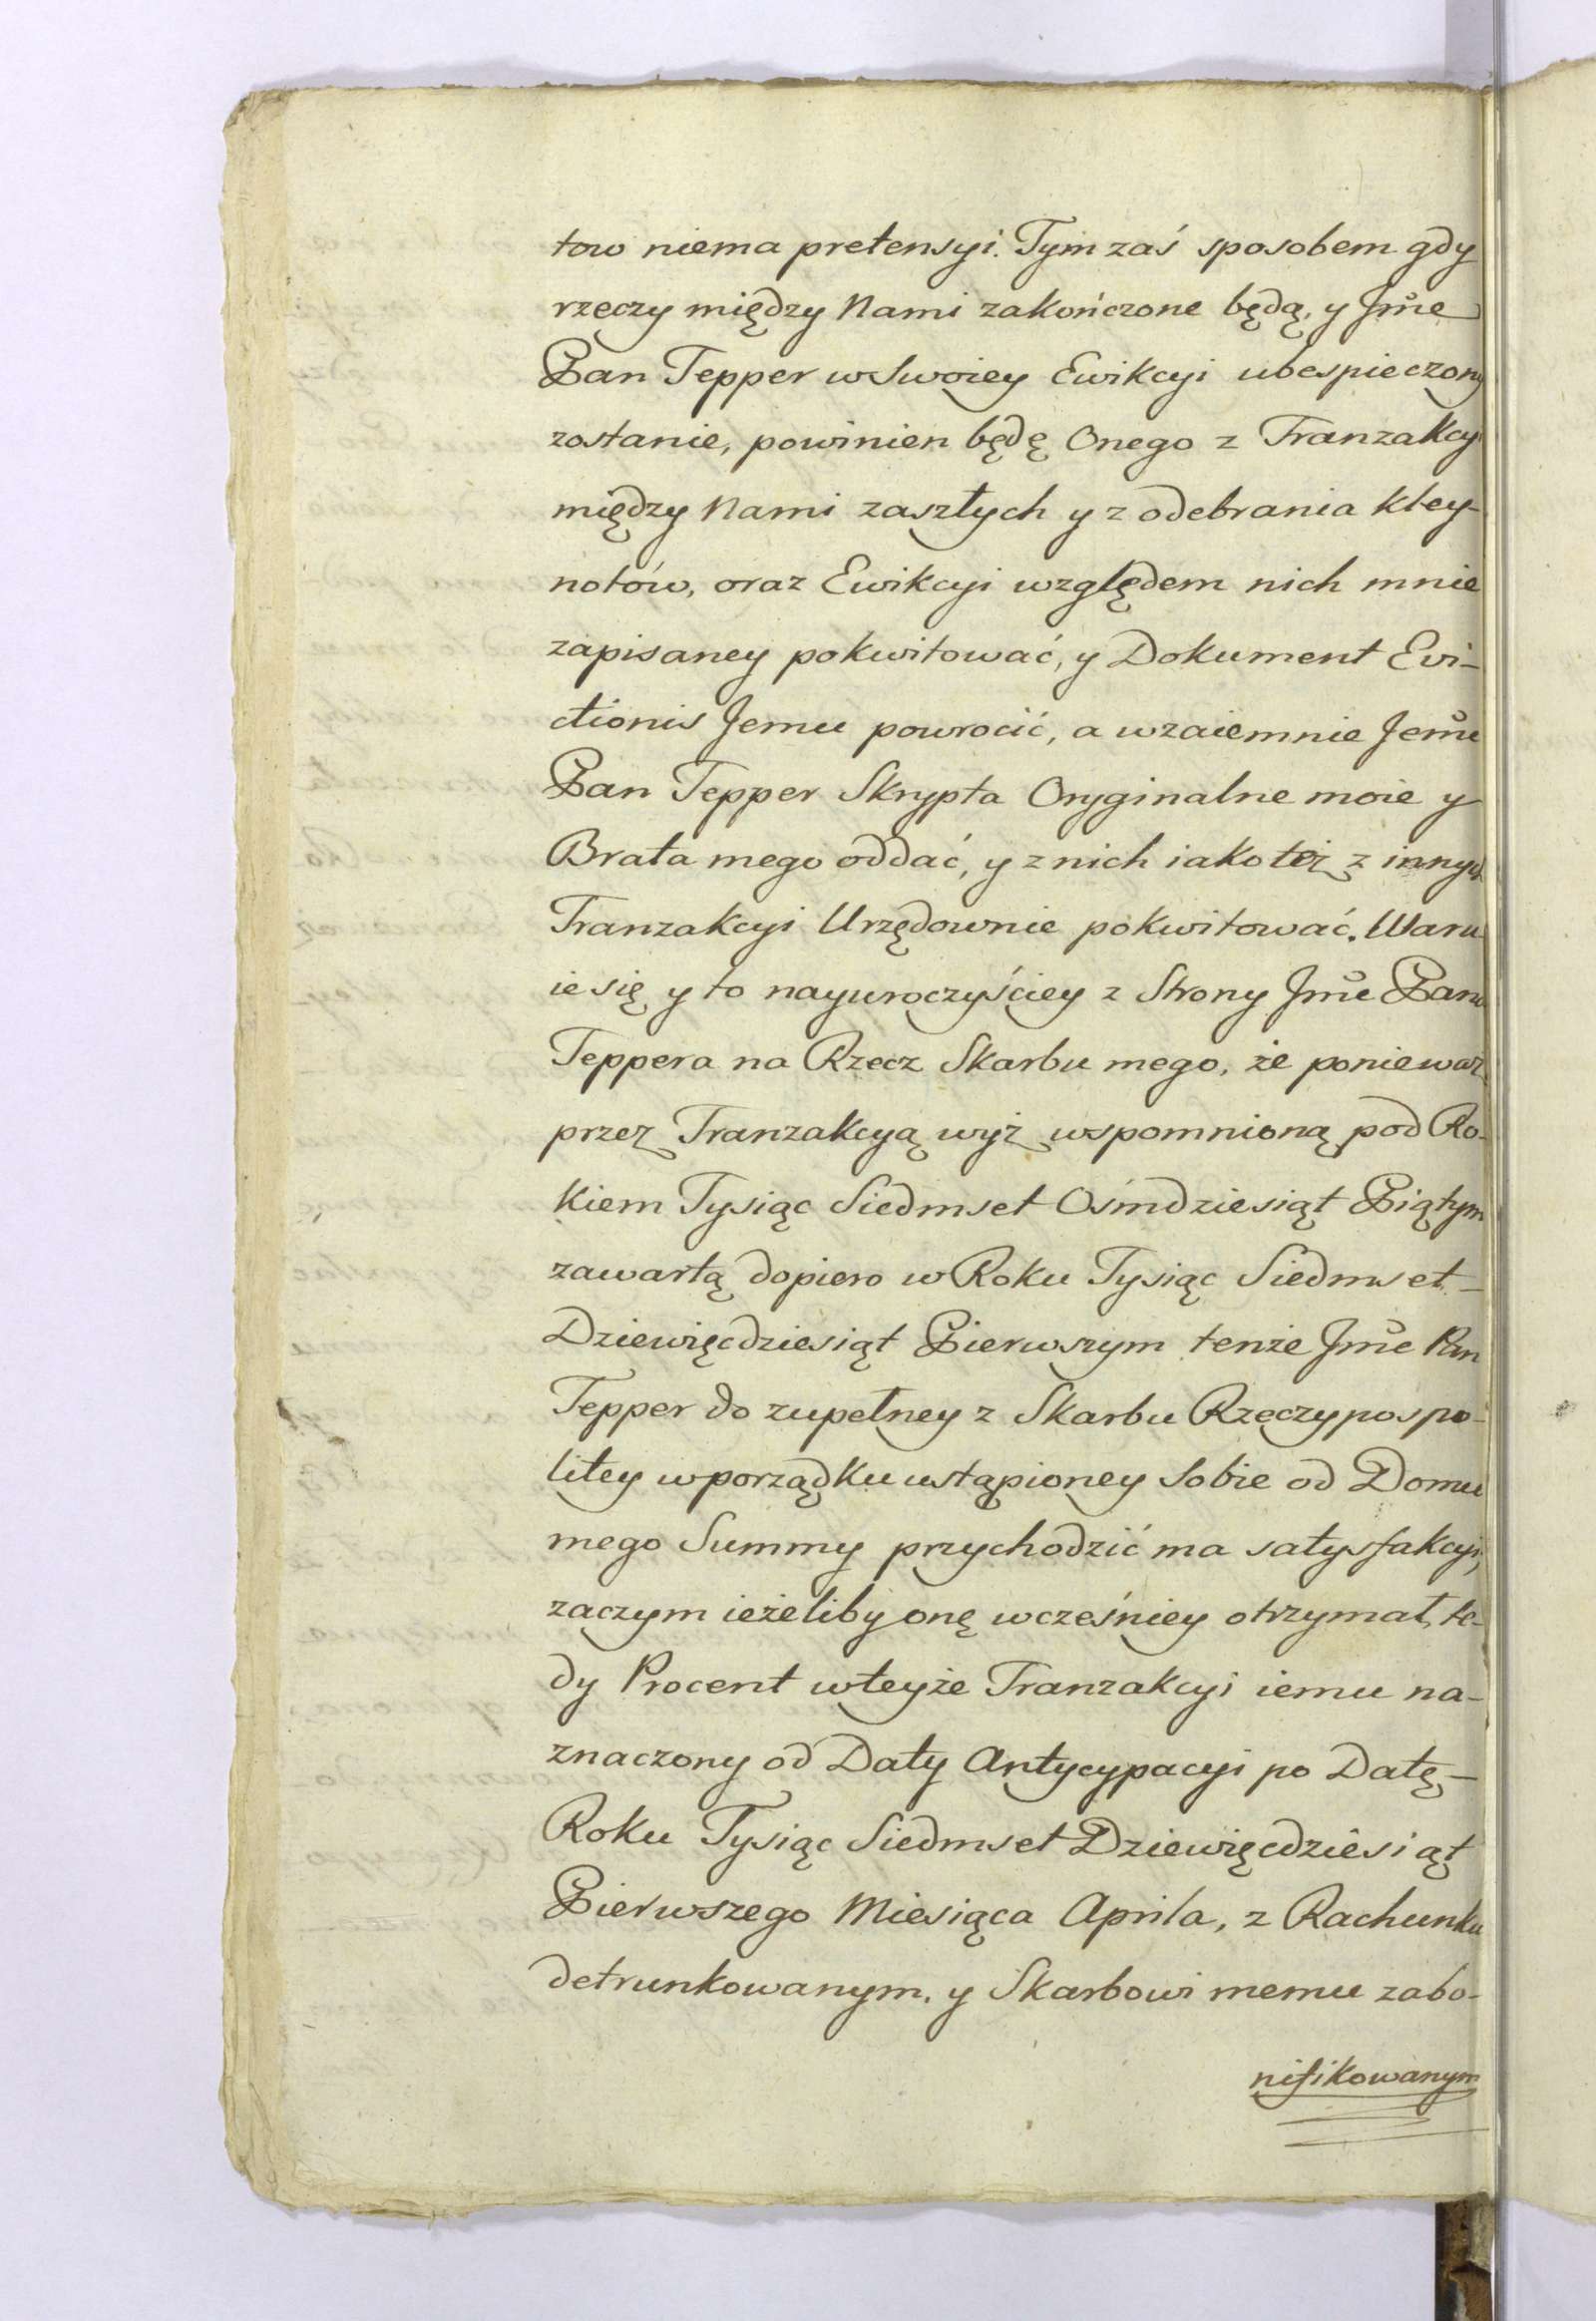 tow niema pretensyi. Tym zaś sposobem gdy
rzęczy między Nami zakończone będą, y Jme
Pan Tepper w Swoiey Ewikcyi ubespieczony
zostanie, powinien będę Onego z Tranzakcyi
między Nami zaszłych y z odebrania kley-
notów, oraz Ewikcyi względem nich mnie
zapisaney pokwitować, y Dokument Evi-
ctionis Jemu powrocić, a wzaiemnie Jemu
Pan Tepper Skrypta Oryginalne moie y
Brata mego oddać, y z nich iako też z innych
Tranzakcyi Urzędownie pokwitować. Waru-
ie się y to nayuroczyściey z Strony Jme Pana
Teppera na Rzecz Skarbu mego, że ponieważ
przez Tranzakcyą wyż wspomnioną pod Ro-
kiem Tysiąc Siedmset Ośmdziesiąt Piątym
zawartą dopiero w Roku Tysiąc Siedmset
Dziewięcdziesiąt Pierwszym tenże Jme Pan
Tepper do zupełney z Skarbu Rzęczypospo-
litey w porządku ustąpioney Sobie od Domu
mego Summy przychodzić ma satysfakcyi,
zaczym ieżeliby onę wcześniey otrzymał, te-
dy Procent w teyże Tranzakcyi iemu na-
znaczony od Daty Antycypacyi po Datę
Roku Tysiąc Siedmset Dziewięcdziesiąt
Pierwszego Miesiąca Aprila, z Rachunku
detrunkowanym, y Skarbowi memu zabo-
nifikowanym